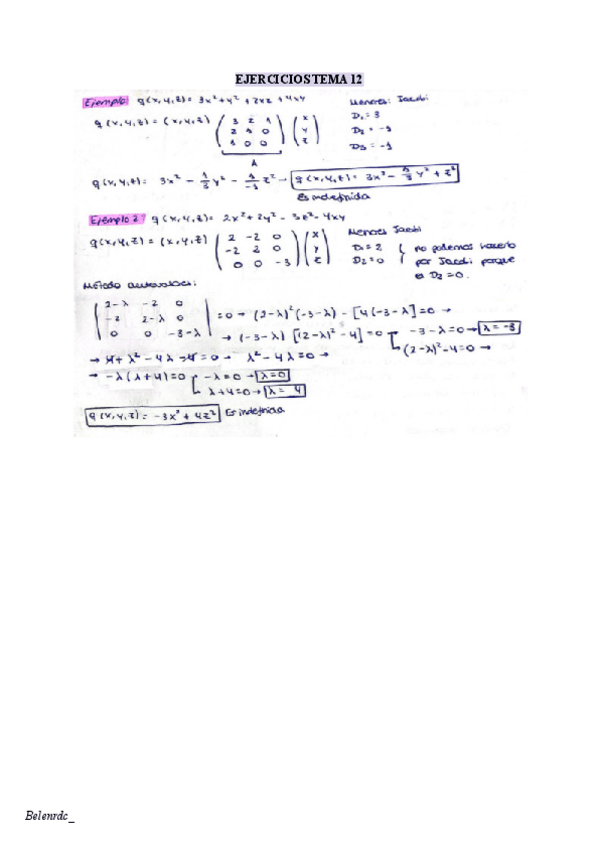 EJERCICIOS TEMA 12
Ejemplo q(x,y,z) = 3x² + y² + 2xz + 4xy
q(x,y,z) = (x,y,z) ( 3 2 1 / 2 1 0 / 1 0 0 ) ( x / y / z )
A
Menores: Jacobi
D₁ = 3
D₂ = -1
D₃ = -1
q(x,y,z) = 3x² - 1/3 y² - 1/-1 z² → q(x,y,z) = 3x² - 1/3 y² + z²
Es indefinida
Ejemplo 2 q(x,y,z) = 2x² + 2y² - 3z² - 4xy
q(x,y,z) = (x,y,z) ( 2 -2 0 / -2 2 0 / 0 0 -3 ) ( x / y / z )
Menores Jacobi
D₁ = 2
D₂ = 0
no podemos hacerlo
por Jacobi porque
D₂ = 0.
Método autovalores:
| 2-λ -2 0 / -2 2-λ 0 / 0 0 -3-λ | = 0 → (2-λ)² (-3-λ) - [4(-3-λ] = 0 →
→ (-3-λ) [(2-λ)² - 4] = 0 -3-λ = 0 → λ = -3
(2-λ)² - 4 = 0 →
→ 4 + λ² - 4λ - 4 = 0 → λ² - 4λ = 0 →
→ -λ(λ+4) = 0 -λ = 0 → λ = 0
λ+4 = 0 → λ = 4
q(x,y,z) = -3x² + 4z² Es indefinida
Belenrdc_